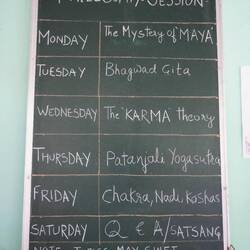 PHILOSOPHY SESSION
MONDAY The Mystery of "MAYA"
TUESDAY Bhagwad Gita
WEDNESDAY The "KARMA" theory
THURSDAY Patanjali Yogasutra
FRIDAY Chakra, Nadi Koshas
SATURDAY Q & A/SATSANG
NOTE TOPICS MAY SHIFT